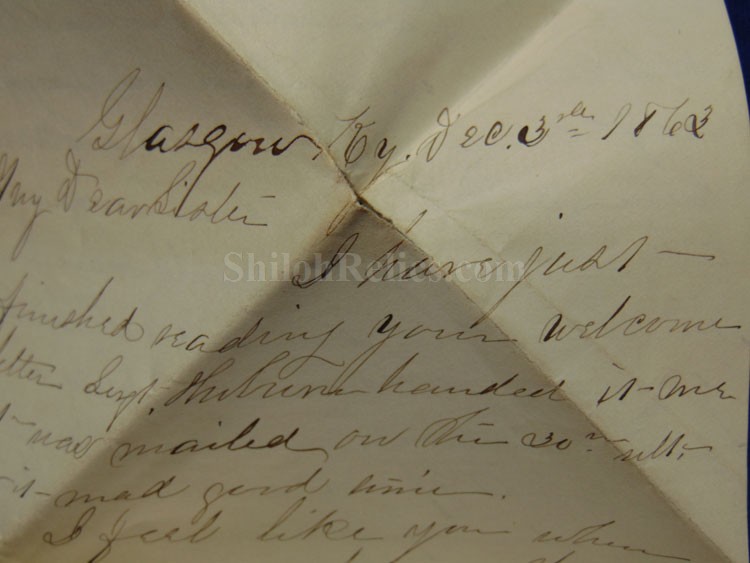 Glasgow Ky. Dec. 3rd 1863
My Dear Sister
I have just
ShilohRelics.com
finished reading your welcome
letter Sergt. handed it me
it was mailed on the 30th ult.
it mad good time.
I feel like you when